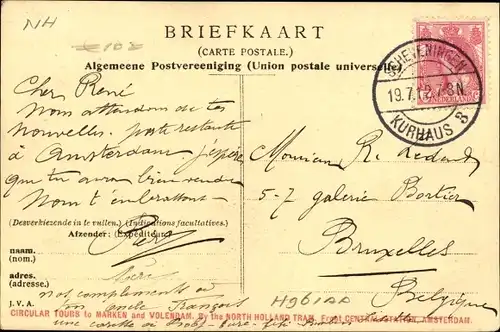 NH
BRIEFKAART
(CARTE POSTALE.)
Algemeene Postvereeniging (Union postale universelle)
SCHEVENINGEN
19.7.12.7-8N
KURHAUS 3
NEDERLAND
Cher René
Nous attendons de tes
nouvelles, poste restante
à Amsterdam j'espère
que tu auras bien
Nous t'embrassons
(Desverkiezende in te vullen.) (Indications facultatives.)
Afzender: (Expéditeur)
Père
naam.
(nom.)
adres.
(adresse.)
mère
nos compliments à
ton oncle François
J. V. A.
une carte
Monsieur R.
5-7 galerie Bortier
Bruxelles
Belgique
H961AA
CIRCULAR TOURS to MARKEN and VOLENDAM. By the NORTH HOLLAND TRAM. From CENTRAL STATION, AMSTERDAM.